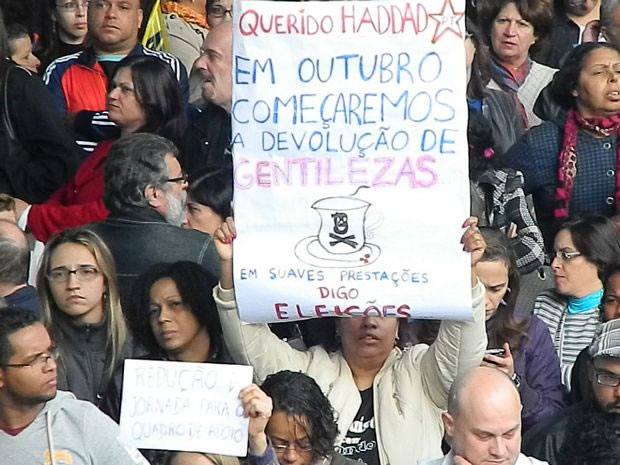 QUERIDO HADDAD PT
EM OUTUBRO
COMEÇAREMOS
A DEVOLUÇÃO DE
GENTILEZAS
EM SUAVES PRESTAÇÕES
DIGO
ELEIÇÕES
REDUÇÃO D
JORNADA PARA O
QUADRO DE APOIO